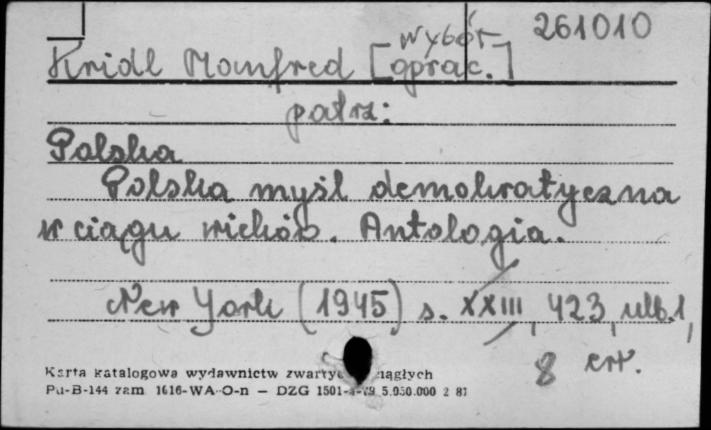 261010
wybór
Kridl Manfred [oprac.]
patrz:
Polska
Polska myśl demokratyczna
w ciągu wieków. Antologia.
New York (1945) s. XXIII, 423, nlb. 1,
8
Karta katalogowa wydawnictw
Pu-B-144 zam. 1616-WA-O-n — DZG 1501 5.050.000 2 87